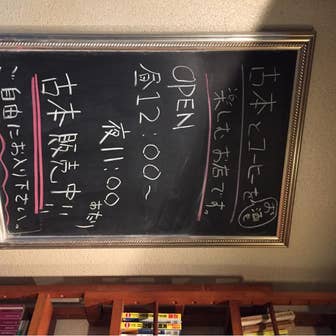 古本とコーヒーを
お酒
楽しむお店です。
OPEN
昼12:00〜
夜11:00
あたり
古本販売中!!
ご自由にお入り下さい。